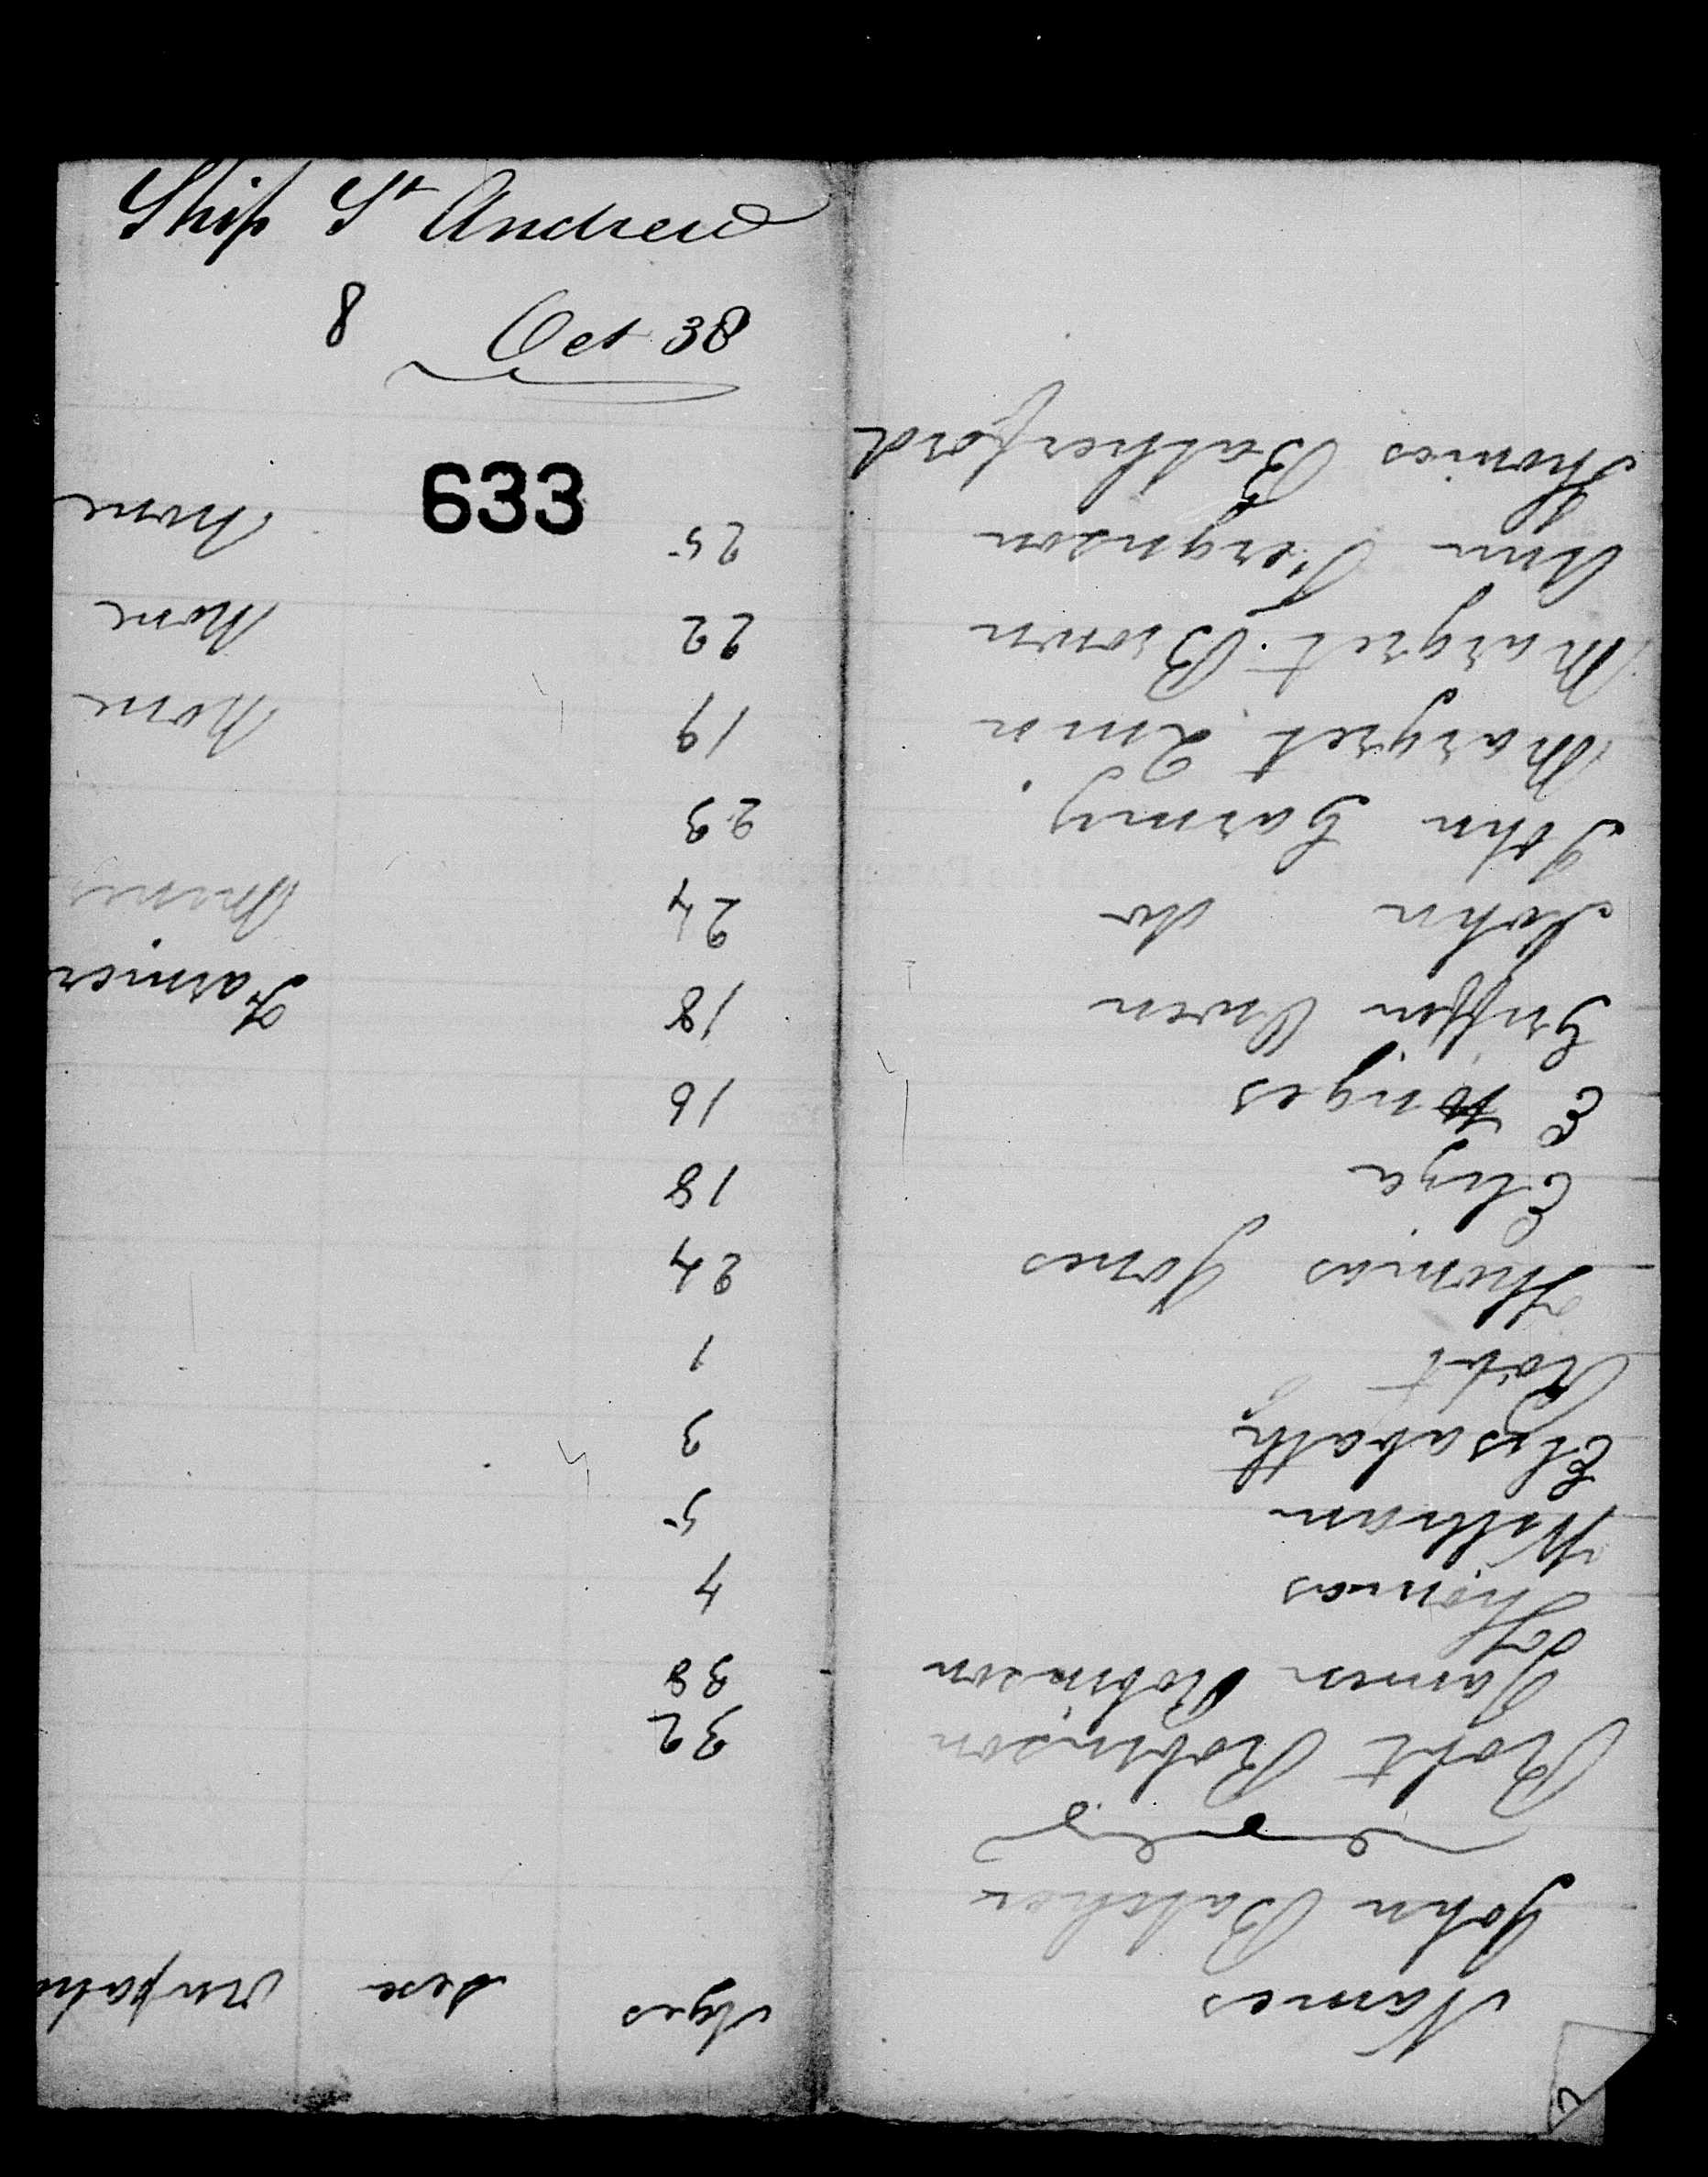 Ship St Andrew
8 Oct 38
633
Names Ages Sex
John Butcher
Robt Robinson 32
James Robinson 38
Thomas 4
William 5
Elisabath 3
Robt 1
Thomas Jones 24
Eliza 18
E 16
Griffen Owen 18 Farmer
John do 24
John 23
Margret 19 None
Margret Brown 22 None
Ann Ferguson 25 None
Thomas